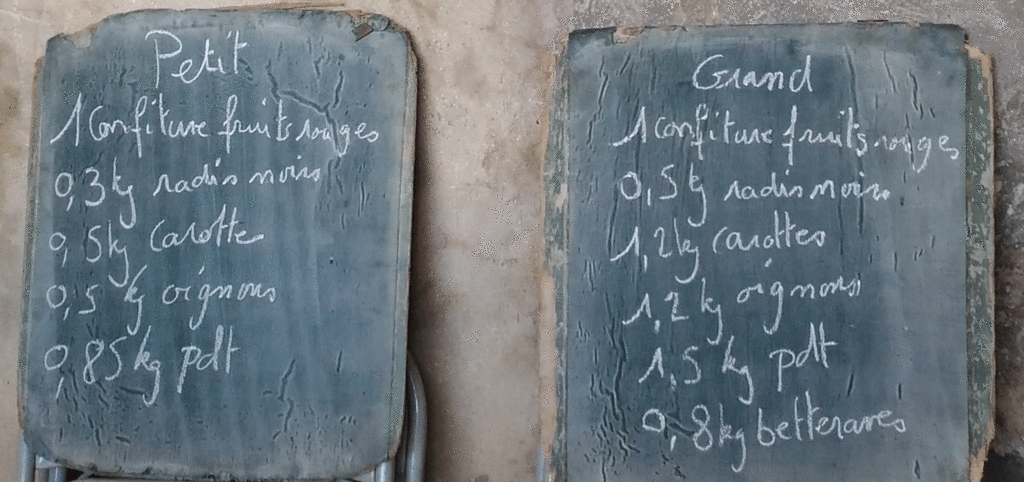 Petit
1 Confiture fruits rouges
0,3 kg radis noirs
0,5 kg Carotte
0,5 kg oignons
0,85 kg pdt
Grand
1 confiture fruits rouges
0,5 kg radis noirs
1,2 kg carottes
1,2 kg oignons
1,5 kg pdt
0,8 kg betteraves